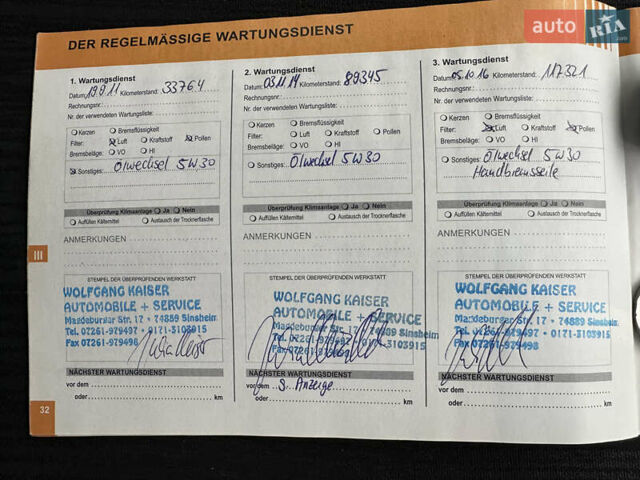 auto RIA.com
DER REGELMÄSSIGE WARTUNGSDIENST
1. Wartungsdienst
Datum: 19.9.11 Kilometerstand: 33764
Rechnungsnr.:
Nr. der verwendeten Wartungsliste:
Kerzen Bremsflüssigkeit
Filter: Luft Kraftstoff Pollen
Bremsbeläge: VO HI
Sonstiges: Ölwechsel 5W30
Überprüfung Klimaanlage Ja Nein
Auffüllen Kältemittel Austausch der Trocknerflasche
ANMERKUNGEN
STEMPEL DER ÜBERPRÜFENDEN WERKSTATT
WOLFGANG KAISER
AUTOMOBILE + SERVICE
Magdeburger Str. 17 • 74889 Sinsheim
Tel. 07261-979497 • 0171-3103915
Fax 07261-979498
NÄCHSTER WARTUNGSDIENST
vor dem
oder km
32
2. Wartungsdienst
Datum: 03.11.14 Kilometerstand: 89345
Rechnungsnr.:
Nr. der verwendeten Wartungsliste:
Kerzen Bremsflüssigkeit
Filter: Luft Kraftstoff Pollen
Bremsbeläge: VO HI
Sonstiges: Ölwechsel 5W30
Überprüfung Klimaanlage Ja Nein
Auffüllen Kältemittel Austausch der Trocknerflasche
ANMERKUNGEN
STEMPEL DER ÜBERPRÜFENDEN WERKSTATT
WOLFGANG KAISER
AUTOMOBILE + SERVICE
Magdeburger Str. 17 • 74889 Sinsheim
Tel. 07261-979497 • 0171-3103915
Fax 07261-979498
NÄCHSTER WARTUNGSDIENST
vor dem S. Anzeige
oder km
3. Wartungsdienst
Datum: 05.10.16 Kilometerstand: 117321
Rechnungsnr.:
Nr. der verwendeten Wartungsliste:
Kerzen Bremsflüssigkeit
Filter: Luft Kraftstoff Pollen
Bremsbeläge: VO HI
Sonstiges: Ölwechsel 5W30
Handbremsseile
Überprüfung Klimaanlage Ja Nein
Auffüllen Kältemittel Austausch der Trocknerflasche
ANMERKUNGEN
STEMPEL DER ÜBERPRÜFENDEN WERKSTATT
WOLFGANG KAISER
AUTOMOBILE + SERVICE
Magdeburger Str. 17 • 74889 Sinsheim
Tel. 07261-979497 • 0171-3103915
Fax 07261-979498
NÄCHSTER WARTUNGSDIENST
vor dem
oder km
III